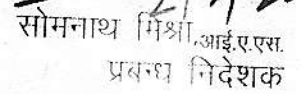 सोमनाथ मिश्रा,आई.ए.एस.
प्रबन्ध निदेशक